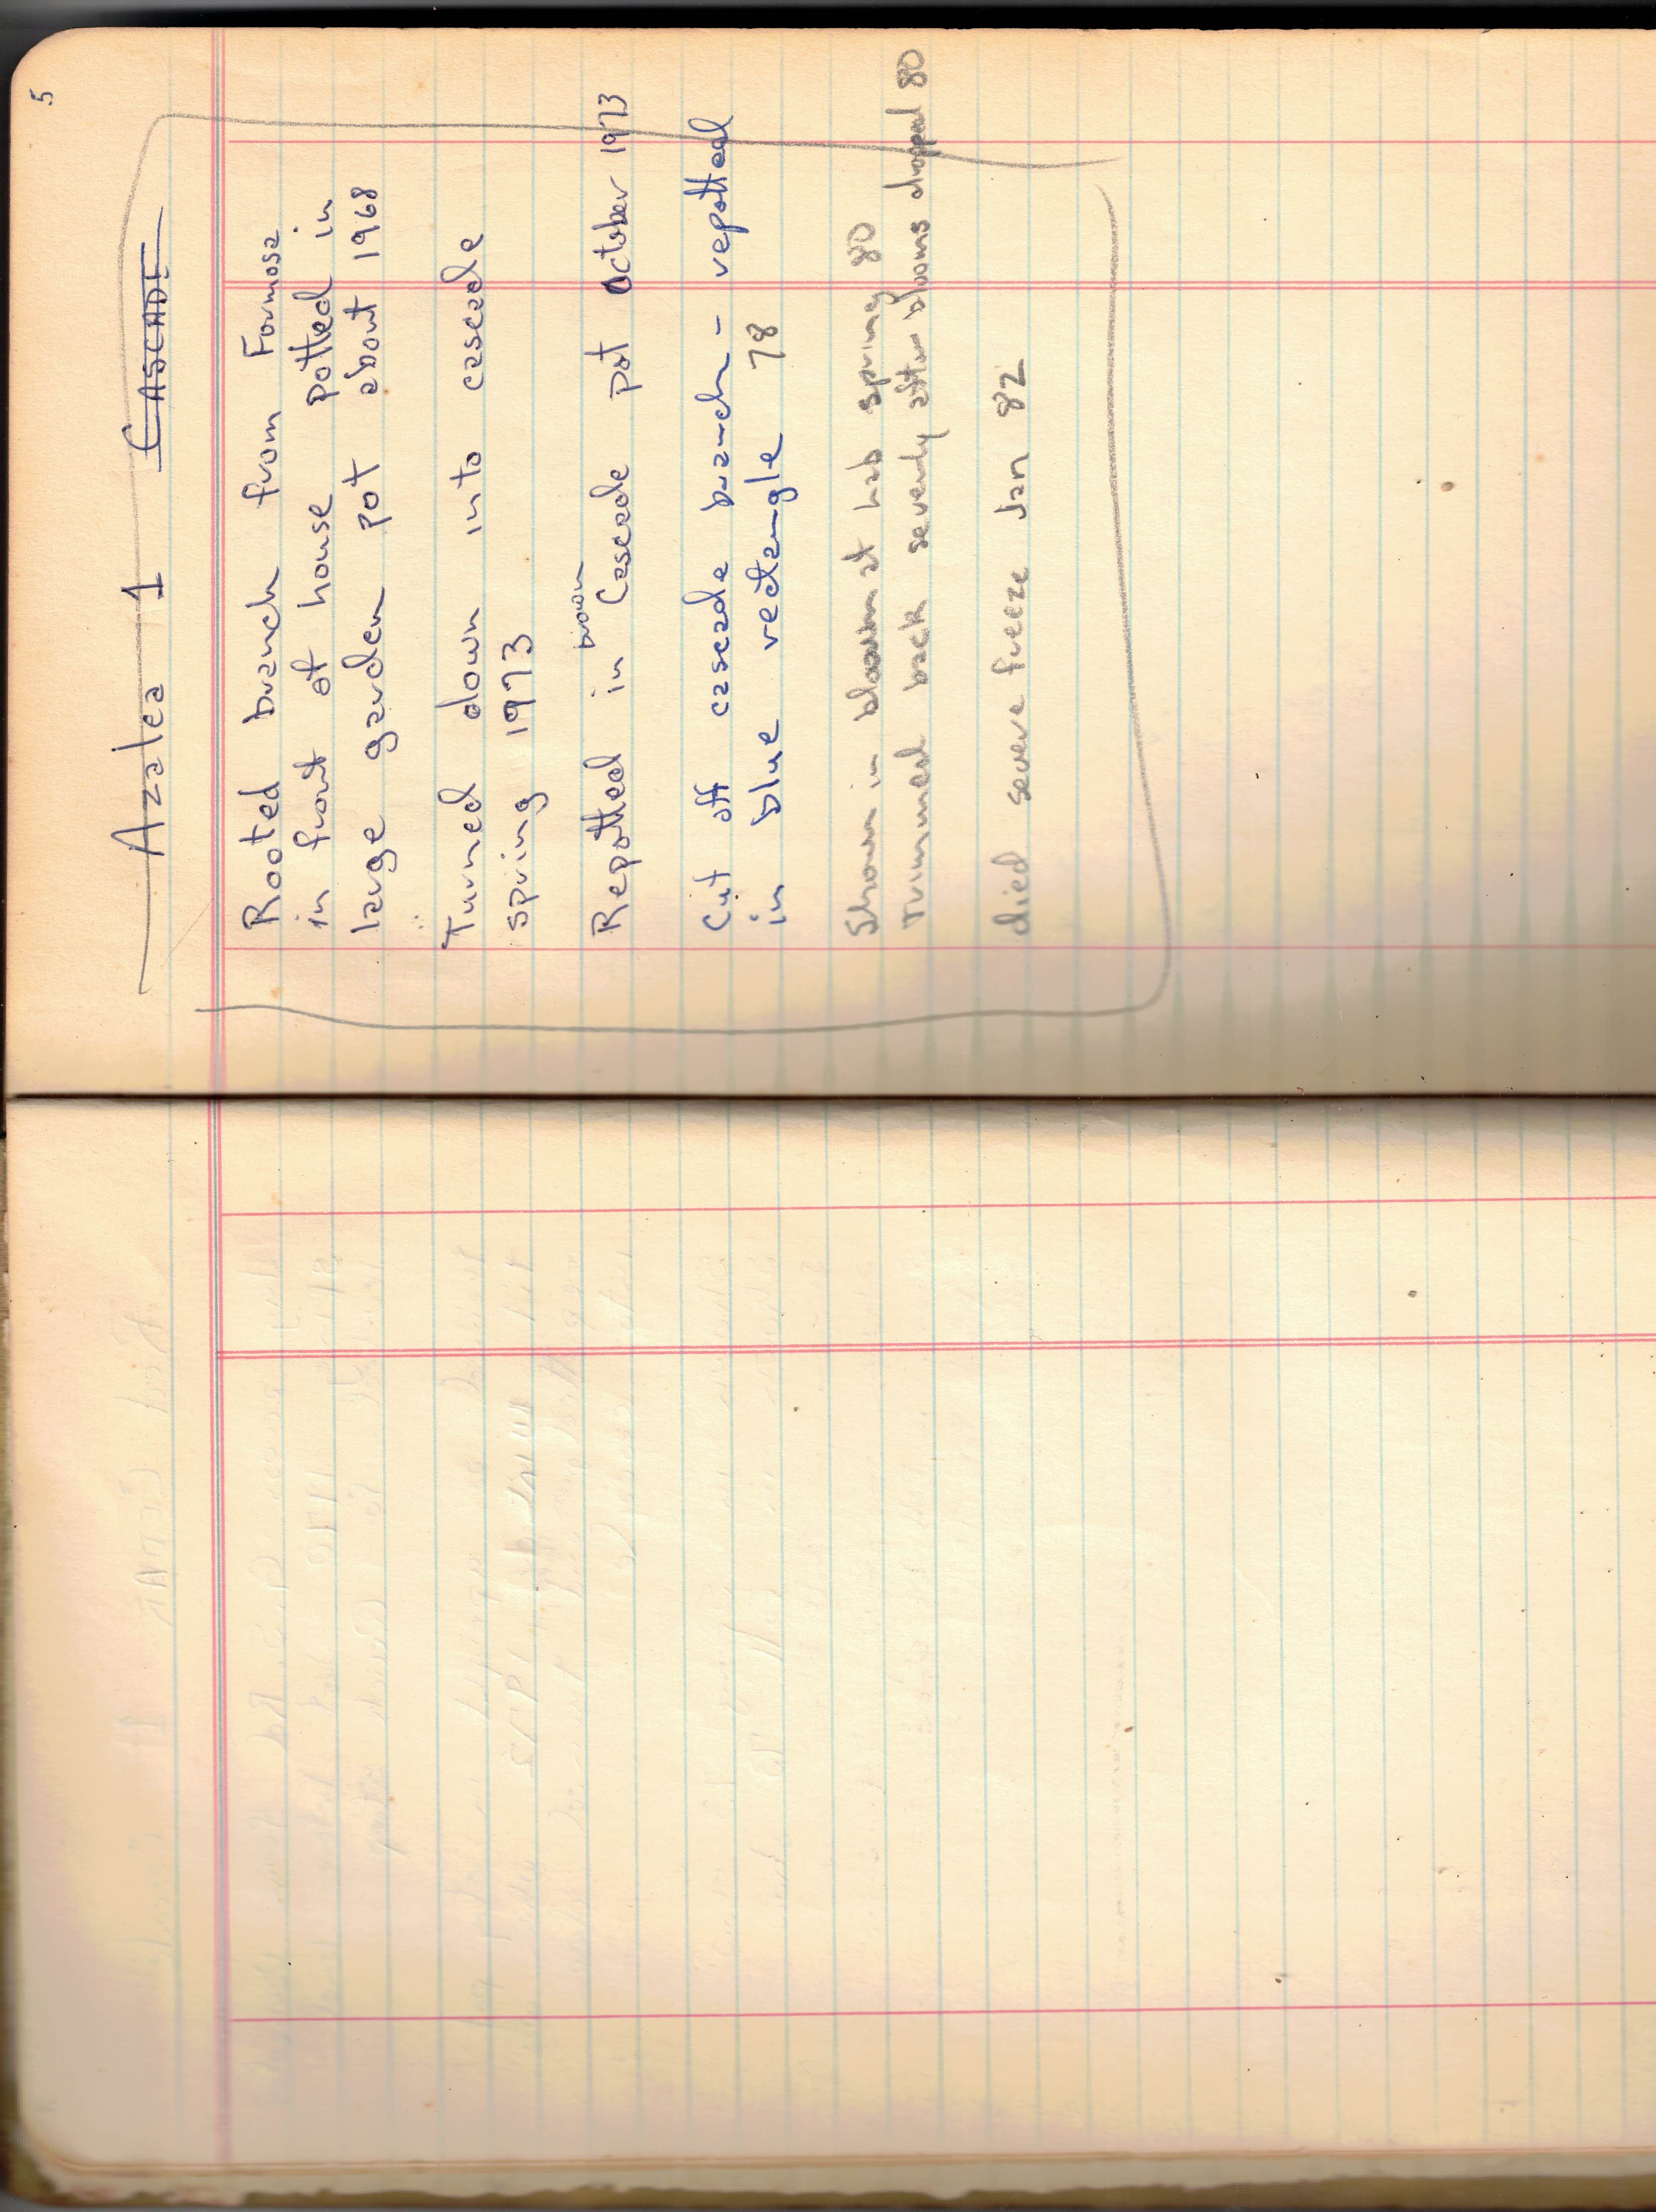 5
Azalea 1 CASCADE
Rooted branch from Formosa
in front of house potted in
large garden pot about 1968
Turned down into cascade
spring 1973
brown
Repotted in Cascade pot October 1973
Cut off cascade branch - repotted
in blue rectangle 78
Shown in bloom at Lab spring 80
Trimmed back severly after blooms dropped 80
died severe freeze Jan 82